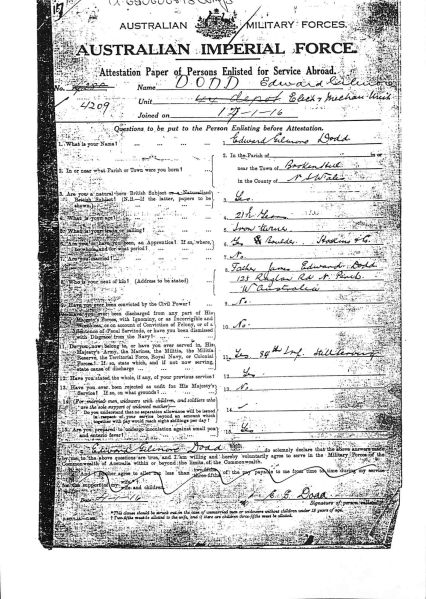 AUSTRALIAN MILITARY FORCES.
AUSTRALIAN IMPERIAL FORCE.
Attestation Paper of Persons Enlisted for Service Abroad.
No. 4209 Name DODD Edward
Unit Elect & Mechan
Joined on 17-1-16
Questions to be put to the Person Enlisting before Attestation.
1. What is your Name? Edward Dodd
2. In or near what Parish or Town were you born? 2. In the Parish of in or
near the Town of Broken Hill
in the County of N S Wales
3. Are you a natural born British Subject or a Naturalized
British Subject? (N.B.—If the latter, papers to be
shown) 3. Yes
21 Years
Iron Turner
an Apprentice? If so, where,
and for what period? Yes Boulder & Co.
No
next of kin? (Address to be stated) Father James Edward Dodd
128 Rd N. Perth
W Australia
ever been convicted by the Civil Power? 9. No.
ever been discharged from any part of His
Majesty's Forces, with Ignominy, or as Incorrigible and
or on account of Conviction of Felony, or of a
Sentence of Penal Servitude, or have you been dismissed
with Disgrace from the Navy? 10. No.
Do you now belong to, or have you ever served in, His
Majesty's Army, the Marines, the Militia, the Militia
Reserve, the Territorial Force, Royal Navy, or Colonial
Forces? If so, state which, and if not now serving,
state cause of discharge 11. Yes. Inf. Still Serving
12. Have you stated the whole, if any, of your previous service? 12. Yes
13. Have you ever been rejected as unfit for His Majesty's
Service? If so, on what grounds? 13. No
14. (For married men, widowers with children, and soldiers who
are the sole support of widowed mother)—
Do you understand that no separation allowance will be issued
in respect of your service beyond an amount which
together with pay would reach eight shillings per day? 14.
15. Are you prepared to undergo inoculation against small pox
and enteric fever? 15. Yes
Edward Dodd do solemnly declare that the above answers made
by me to the above questions are true, and I am willing and hereby voluntarily agree to serve in the Military Forces of the
Commonwealth of Australia within or beyond the limits of the Commonwealth.
agree to allot not less than of the pay payable to me from time to time during my service
for the support of my wife and children.
E. E. Dodd
Signature of person enlisted.